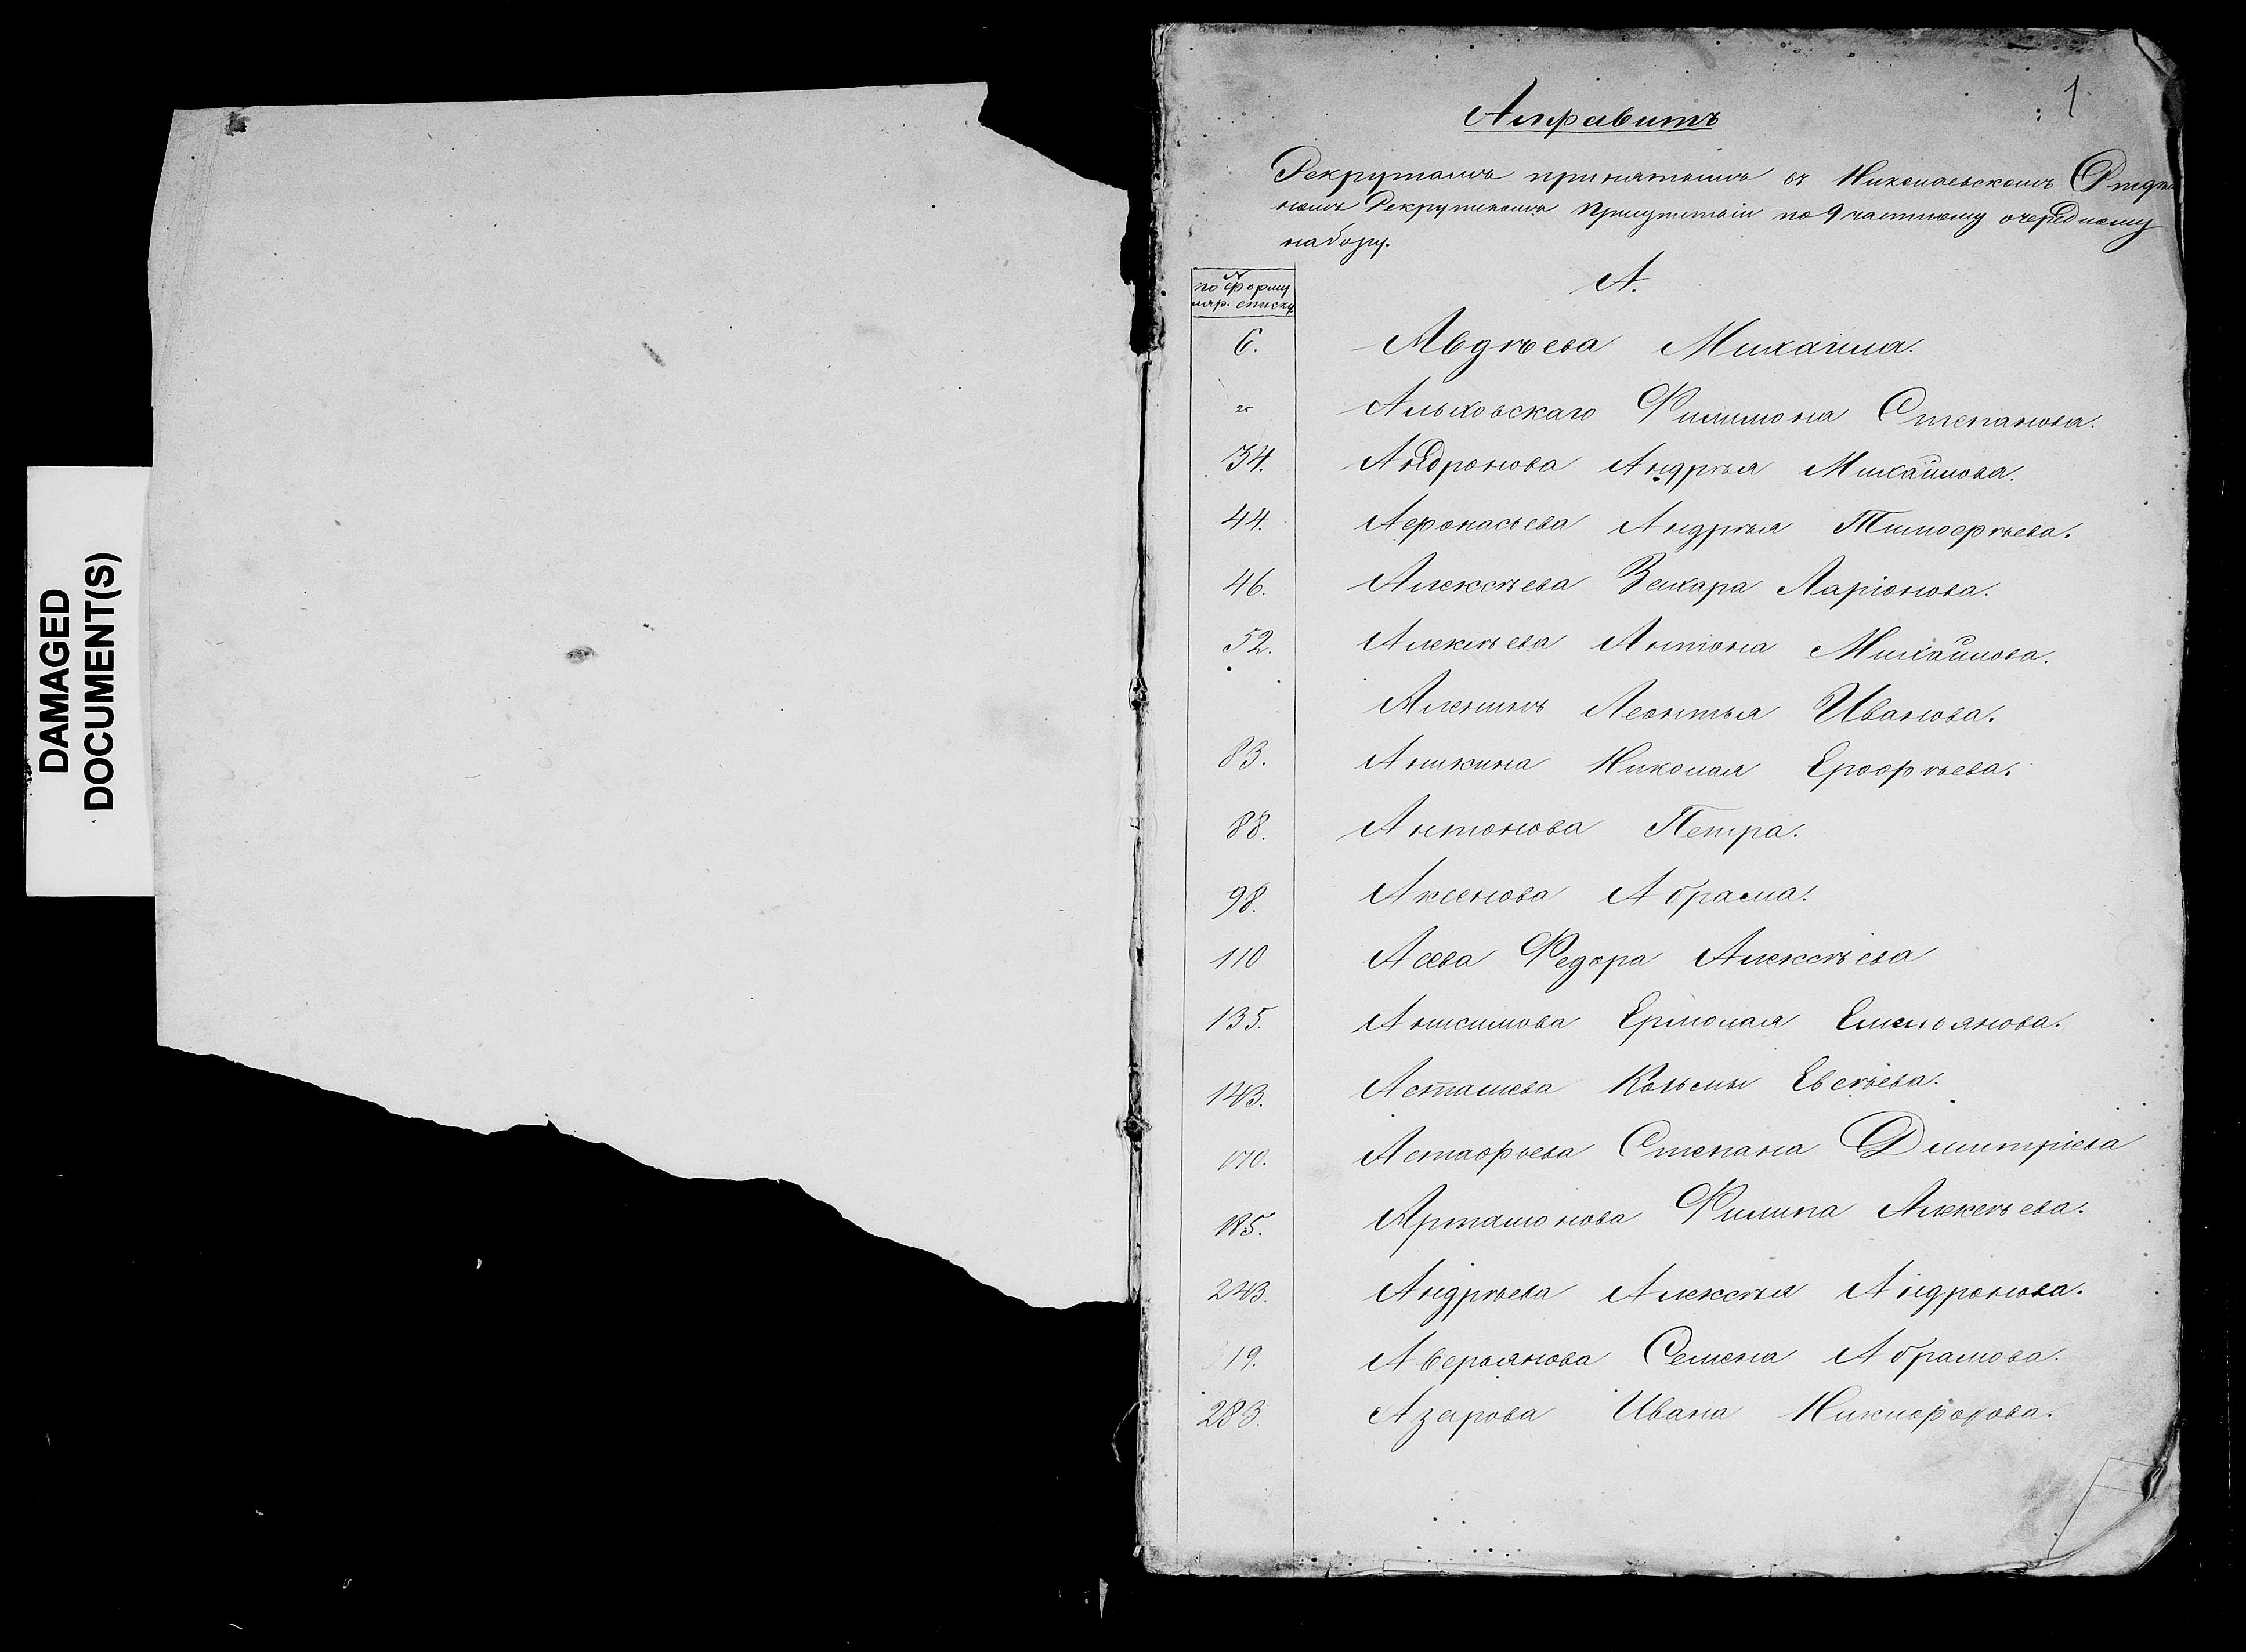 DAMAGED
DOCUMENT(S)
1
Алфавитъ
Рекрутамъ принятымъ въ Николаевскомъ Отдѣль
номъ Рекрутскомъ Присутствіи по 9 частному очередному
набору.
А.
№
по форму
ляр. списку
6. Авдѣева Михаила.
Альховскаго Филимона Степанова.
34. Андронова Андрѣя Михайлова.
44. Афонасьева Андрѣя Тимофѣева.
46. Алексѣева Захара Ларіонова.
52. Алексѣева Антона Михайлова.
Леонтья Иванова.
83. Аникина Николая Ерофѣева.
88. Антонова Петра.
98. Аксенова Абрама.
110 Асева Федора Алексѣева
135. Анисимова Ермолая Емельянова.
143. Асташева Козьмы Евсѣева.
170. Астафьева Степана Дмитріева
185. Артамонова Филипа Алексѣева.
243. Андрѣева Алексѣя Андронова.
19. Аверьянова Семена Абрамова.
283. Азарова Ивана Никифорова.